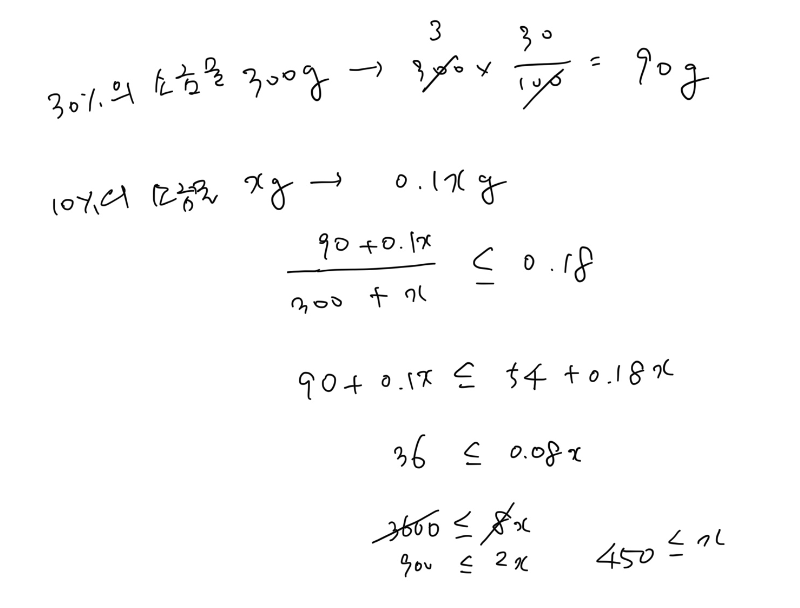 30%의 소금물 300g → 300 × 30/100 = 90g
3
10%의 소금물 xg → 0.1x g
(90 + 0.1x)/(300 + x) ≤ 0.18
90 + 0.1x ≤ 54 + 0.18x
36 ≤ 0.08x
3600 ≤ 8x
900 ≤ 2x 450 ≤ x